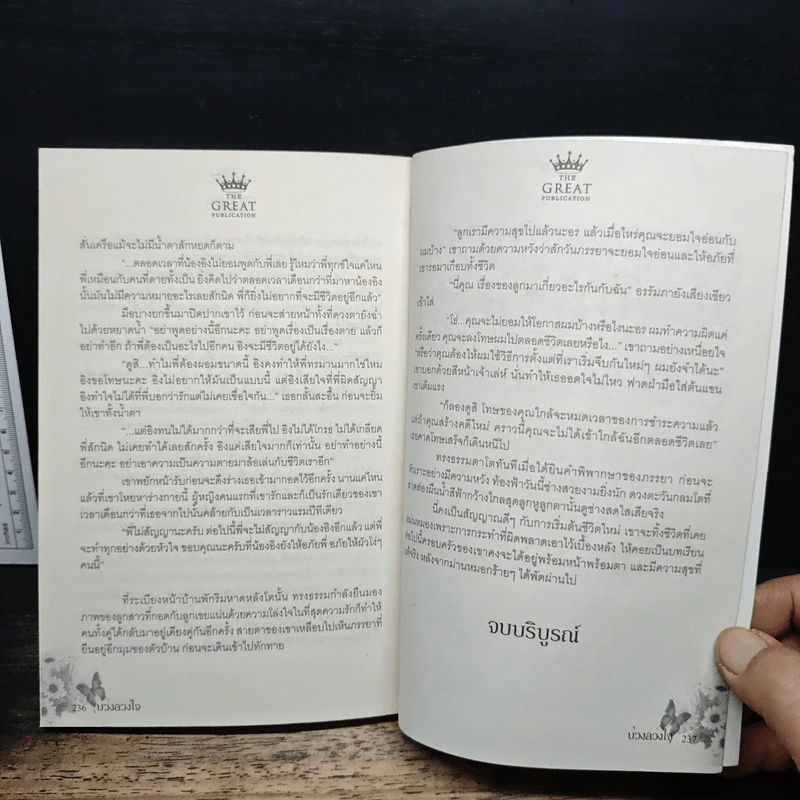 THE
GREAT
PUBLICATION
สั่นเครือแม้จะไม่มีน้ำตาสักหยดก็ตาม
"...ตลอดเวลาที่น้องอิงไม่ยอมพูดกับพี่เลย รู้ไหมว่าพี่ทุกข์ใจแค่ไหน
พี่เหมือนกับคนที่ตายทั้งเป็น ยิ่งคิดไปว่าตลอดเวลาเดือนกว่าที่มาหาน้องอิง
นั้นมันไม่มีความหมายอะไรเลยสักนิด พี่ก็ยิ่งไม่อยากที่จะมีชีวิตอยู่อีกแล้ว"
มือบางยกขึ้นมาปิดปากเขาไว้ ก่อนจะส่ายหน้าทั้งที่ดวงตายังฉ่ำ
ไปด้วยหยาดน้ำ "อย่าพูดอย่างนี้อีกนะคะ อย่าพูดเรื่องเป็นเรื่องตาย แล้วก็
อย่าทำอีก ถ้าพี่ต้องเป็นอะไรไปอีกคน อิงจะมีชีวิตอยู่ได้ยังไง..."
"ดูสิ...ทำไมพี่ต้องยอมขนาดนี้ อิงคงทำให้พี่ทรมานมากใช่ไหม
อิงขอโทษนะคะ อิงไม่อยากให้มันเป็นแบบนี้ แต่อิงเสียใจที่พี่ผิดสัญญา
อิงทำใจไม่ได้ที่พี่บอกว่ารักแต่ไม่เคยเชื่อใจกัน..." เธอกลั้นสะอื้น ก่อนจะยิ้ม
ให้เขาทั้งน้ำตา
"...แต่อิงทนไม่ได้มากกว่าที่จะเสียพี่ไป อิงไม่ได้โกรธ ไม่ได้เกลียด
พี่สักนิด ไม่เคยทำได้เลยสักครั้ง อิงแค่เสียใจมากก็เท่านั้น อย่าทำอย่างนี้
อีกนะคะ อย่าเอาความเป็นความตายมาล้อเล่นกับชีวิตเราอีก"
เขาพยักหน้ารับก่อนจะดึงร่างเธอเข้ามากอดไว้อีกครั้ง นานแค่ไหน
แล้วที่เขาโหยหาร่างกายนี้ ผู้หญิงคนแรกที่เขารักและก็เป็นรักเดียวของเขา
เวลาเดือนกว่าที่เธอจากไปนั้นคล้ายกับเป็นเวลาราวแรมปีทีเดียว
"พี่ไม่สัญญานะครับ ต่อไปนี้พี่จะไม่สัญญากับน้องอิงอีกแล้ว แต่พี่
จะทำทุกอย่างด้วยหัวใจ ขอบคุณนะครับที่น้องอิงยังให้อภัยพี่ อภัยให้ผัวโง่ๆ
คนนี้"
ที่ระเบียงหน้าบ้านพักริมหาดหลังโตนั้น ทรงธรรมกำลังยืนมอง
ภาพของลูกสาวที่กอดกับลูกเขยแน่นด้วยความโล่งใจในที่สุดความรักก็ทำให้
คนทั้งคู่ได้กลับมาอยู่เคียงคู่กันอีกครั้ง สายตาของเขาเหลือบไปเห็นภรรยาที่
ยืนอยู่อีกมุมของตัวบ้าน ก่อนจะเดินเข้าไปทักทาย
236 บ่วงลวงใจ
THE
GREAT
PUBLICATION
"ลูกเรามีความสุขไปแล้วนะอร แล้วเมื่อไหร่คุณจะยอมใจอ่อนกับ
ผมบ้าง" เขาถามด้วยความหวังว่าสักวันภรรยาจะยอมใจอ่อนและให้อภัยที่
เขารอมาเกือบทั้งชีวิต
"นี่คุณ เรื่องของลูกมาเกี่ยวอะไรกับฉัน" อรรัมภายังเสียงเขียว
เข้าใส่
"โธ่...คุณจะไม่ยอมให้โอกาสผมบ้างหรือไงนะอร ผมทำความผิดแค่
ครั้งเดียว คุณจะลงโทษผมไปตลอดชีวิตเลยหรือไง..." เขาถามอย่างเหนื่อยใจ
"หรือว่าคุณต้องให้ผมใช้วิธีการตั้งแต่ที่เราเริ่มจีบกันใหม่ๆ ผมยังจำได้นะ"
เขาบอกด้วยสีหน้าเจ้าเล่ห์ นั่นทำให้เธออดใจไม่ไหว ฟาดฝ่ามือใส่ต้นแขน
เขาเต็มแรง
"ก็ลองดูสิ โทษของคุณใกล้จะหมดเวลาของการชำระความแล้ว
แต่ถ้าคุณสร้างคดีใหม่ คราวนี้คุณจะไม่ได้เข้าใกล้ฉันอีกตลอดชีวิตเลย"
เธอคาดโทษเสร็จก็เดินหนีไป
ทรงธรรมตาโตทันทีเมื่อได้ยินคำพิพากษาของภรรยา ก่อนจะ
หัวเราะอย่างมีความหวัง ท้องฟ้าวันนี้ช่างสวยงามยิ่งนัก ดวงตะวันกลมโตที่
สาดส่องผืนน้ำสีฟ้ากว้างไกลสุดลูกหูลูกตานั้นดูช่างสดใสเสียจริง
นี่คงเป็นสัญญาณดีๆ กับการเริ่มต้นชีวิตใหม่ เขาจะทิ้งชีวิตที่เคย
หม่นหมองเพราะการกระทำที่ผิดพลาดเอาไว้เบื้องหลัง ให้คอยเป็นบทเรียน
ต่อไปนี้ครอบครัวของเขาคงจะได้อยู่พร้อมหน้าพร้อมตา และมีความสุขที่
แท้จริง หลังจากม่านหมอกร้ายๆ ได้พัดผ่านไป
จบบริบูรณ์
บ่วงลวงใจ 237